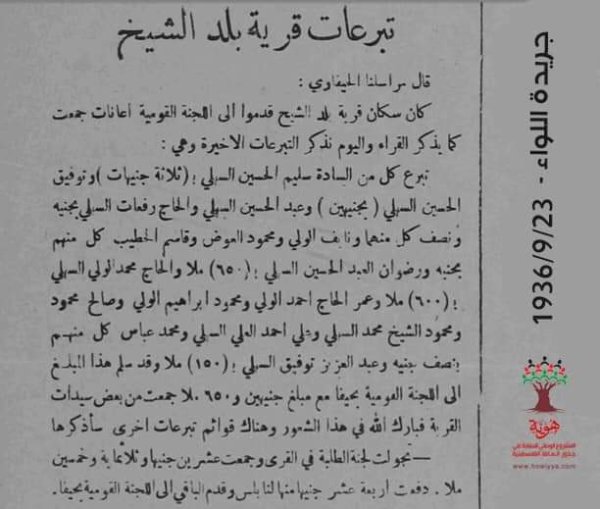 تبرعات قرية بلد الشيخ
قال مراسلنا الحيفاوي :
كان سكان قرية بلد الشيخ قدموا الى اللجنة القومية أعانات جمعت
كما يذكر القراء واليوم نذكر التبرعات الاخيرة وهي :
تبرع كل من السادة سليم الحسين السهلي بـ (ثلاثة جنيهات) وتوفيق
الحسين السهلي (بجنيهين) وعبد الحسين السهلي والحاج رفعات السهلي بجنيه
ونصف كل منهما ونايف الولي ومحمود العوض وقاسم الخطيب كل منهم
بجنيه ورضوان العبد الحسين السهلي بـ (٦٥٠) ملا والحاج محمد الولي السهلي
بـ (٦٠٠) ملا وعمر الحاج احمد الولي ومحمود ابراهيم الولي وصالح محمود
ومحمود الشيخ محمد السهلي وعلي احمد العلي السهلي ومحمد عباس كل منهم
بنصف جنيه وعبد العزيز توفيق السهلي بـ (١٥٠) ملا وقد سلم هذا المبلغ
الى اللجنة القومية بحيفا مع مبلغ جنيهين و ٦٥٠ ملا جمعت من بعض سيدات
القرية فبارك الله في هذا الشعور وهناك قوائم تبرعات اخرى سأذكرها
— تجولت لجنة الطلبة في القرى وجمعت عشرين جنيها وثلاثماية وخمسين
ملا . دفعت اربعة عشر جنيها منها لنابلس وقدم الباقي الى اللجنة القومية بحيفا.
جريدة اللواء - 1936/9/23
هوية
المشروع الوطني للحفاظ على
جذور العائلة الفلسطينية
www.howiyya.com